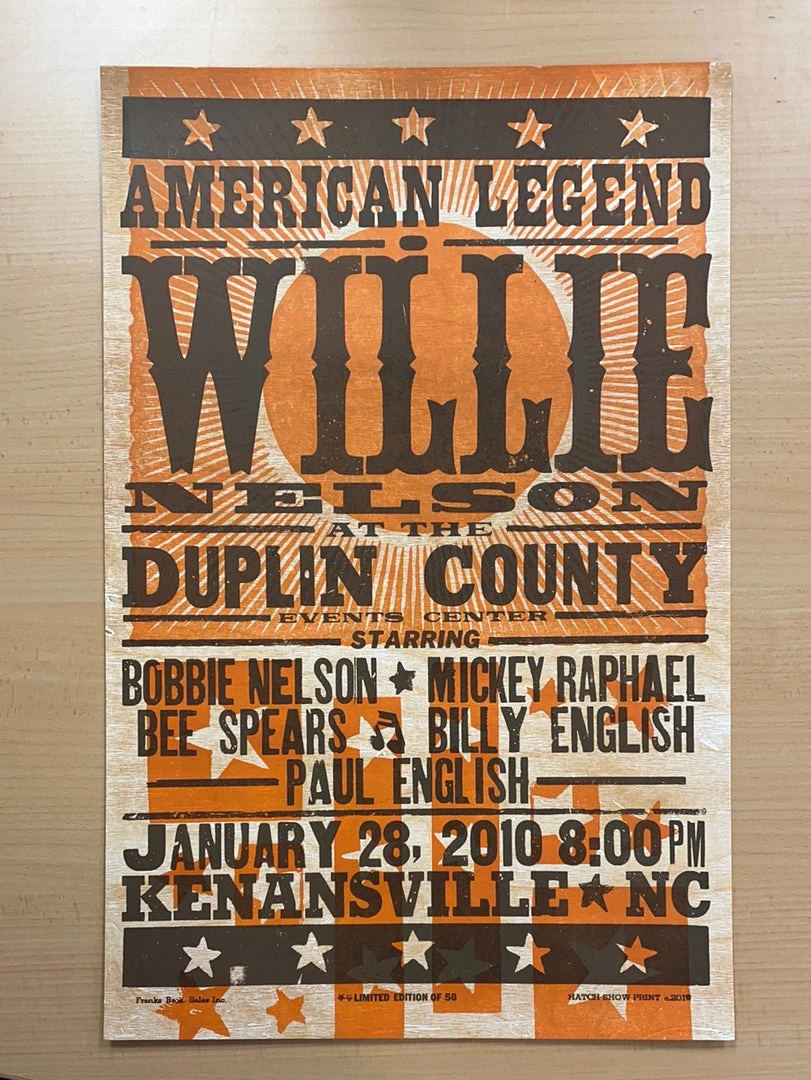 AMERICAN LEGEND
WILLIE
NELSON
AT THE
DUPLIN COUNTY
EVENTS CENTER
STARRING
BOBBIE NELSON ★ MICKEY RAPHAEL
BEE SPEARS ♫ BILLY ENGLISH
PAUL ENGLISH
JANUARY 28, 2010 8:00PM
KENANSVILLE ★ NC
Franks Bros. Sales Inc. LIMITED EDITION OF 50 HATCH SHOW PRINT c.2010